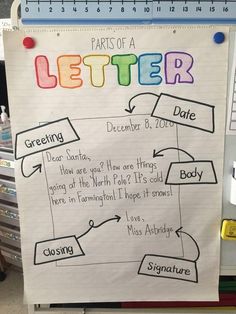 PARTS OF A
LETTER
Date
December 8, 2020
Greeting
Dear Santa,
How are you? How are things
going at the North Pole? It's cold
here in Farmington! I hope it snows!
Body
Closing
Love,
Miss Asbridge
Signature